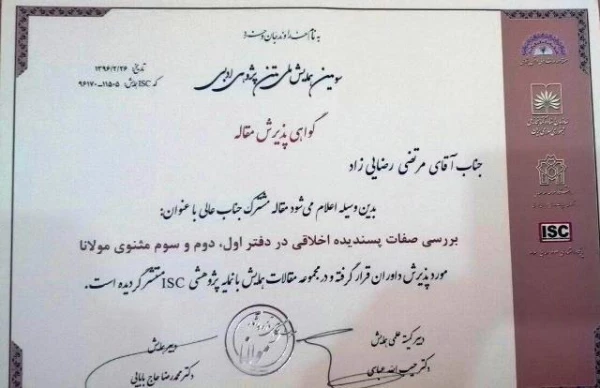 به نام خداوند جان و خرد
سومین همایش ملی متن پژوهی ادبی
تاریخ: ۱۳۹۶/۲/۲۶
کد ISC همایش: ۱۱۵۰۵-۹۶۱۷۰
گواهی پذیرش مقاله
جناب آقای مرتضی رضایی زاد
بدین وسیله اعلام می‌شود مقاله مشترک جناب عالی با عنوان:
بررسی صفات پسندیده اخلاقی در دفتر اول، دوم و سوم مثنوی مولانا
مورد پذیرش داوران قرار گرفته و در مجموعه مقالات همایش با نمایه پژوهشی ISC منتشر گردیده است.
دبیر کمیته علمی همایش
دکتر حبیب الله عباسی
دبیر همایش
دکتر محمدرضا حاج بابایی
ISC